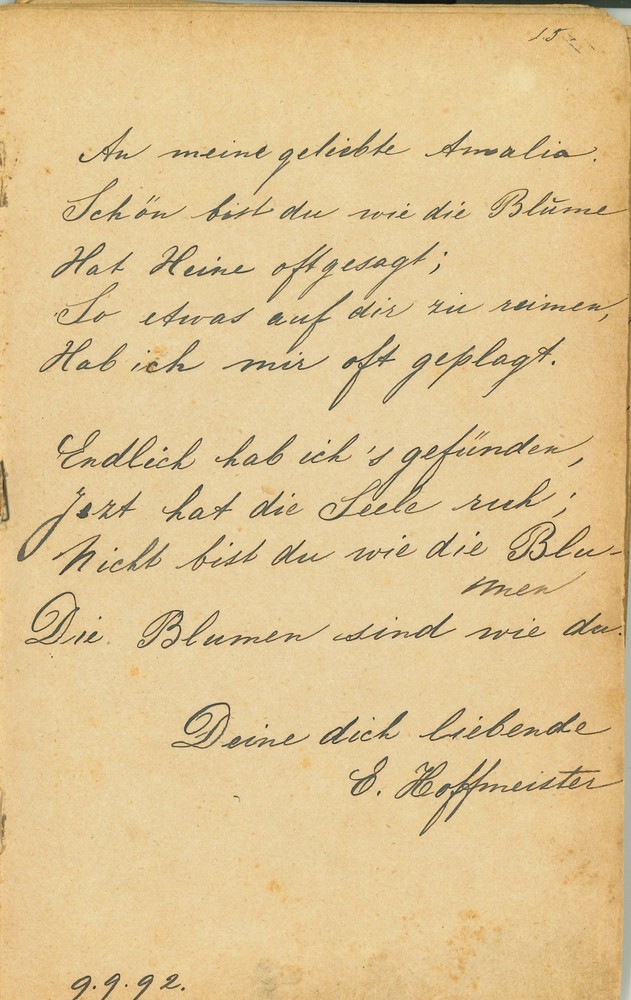 15
An meine geliebte Amalia.
Schön bist du wie die Blŭme
Hat Heine oft gesagt;
So etwas auf dir zu reimen,
Hab ich mir oft geplagt.
Endlich hab ich's gefŭnden,
Jezt hat die Seele ruh;
Nicht bist du wie die Blu-
men
Die Blumen sind wie du.
Deine dich liebende
E. Hoffmeister
9.9.92.